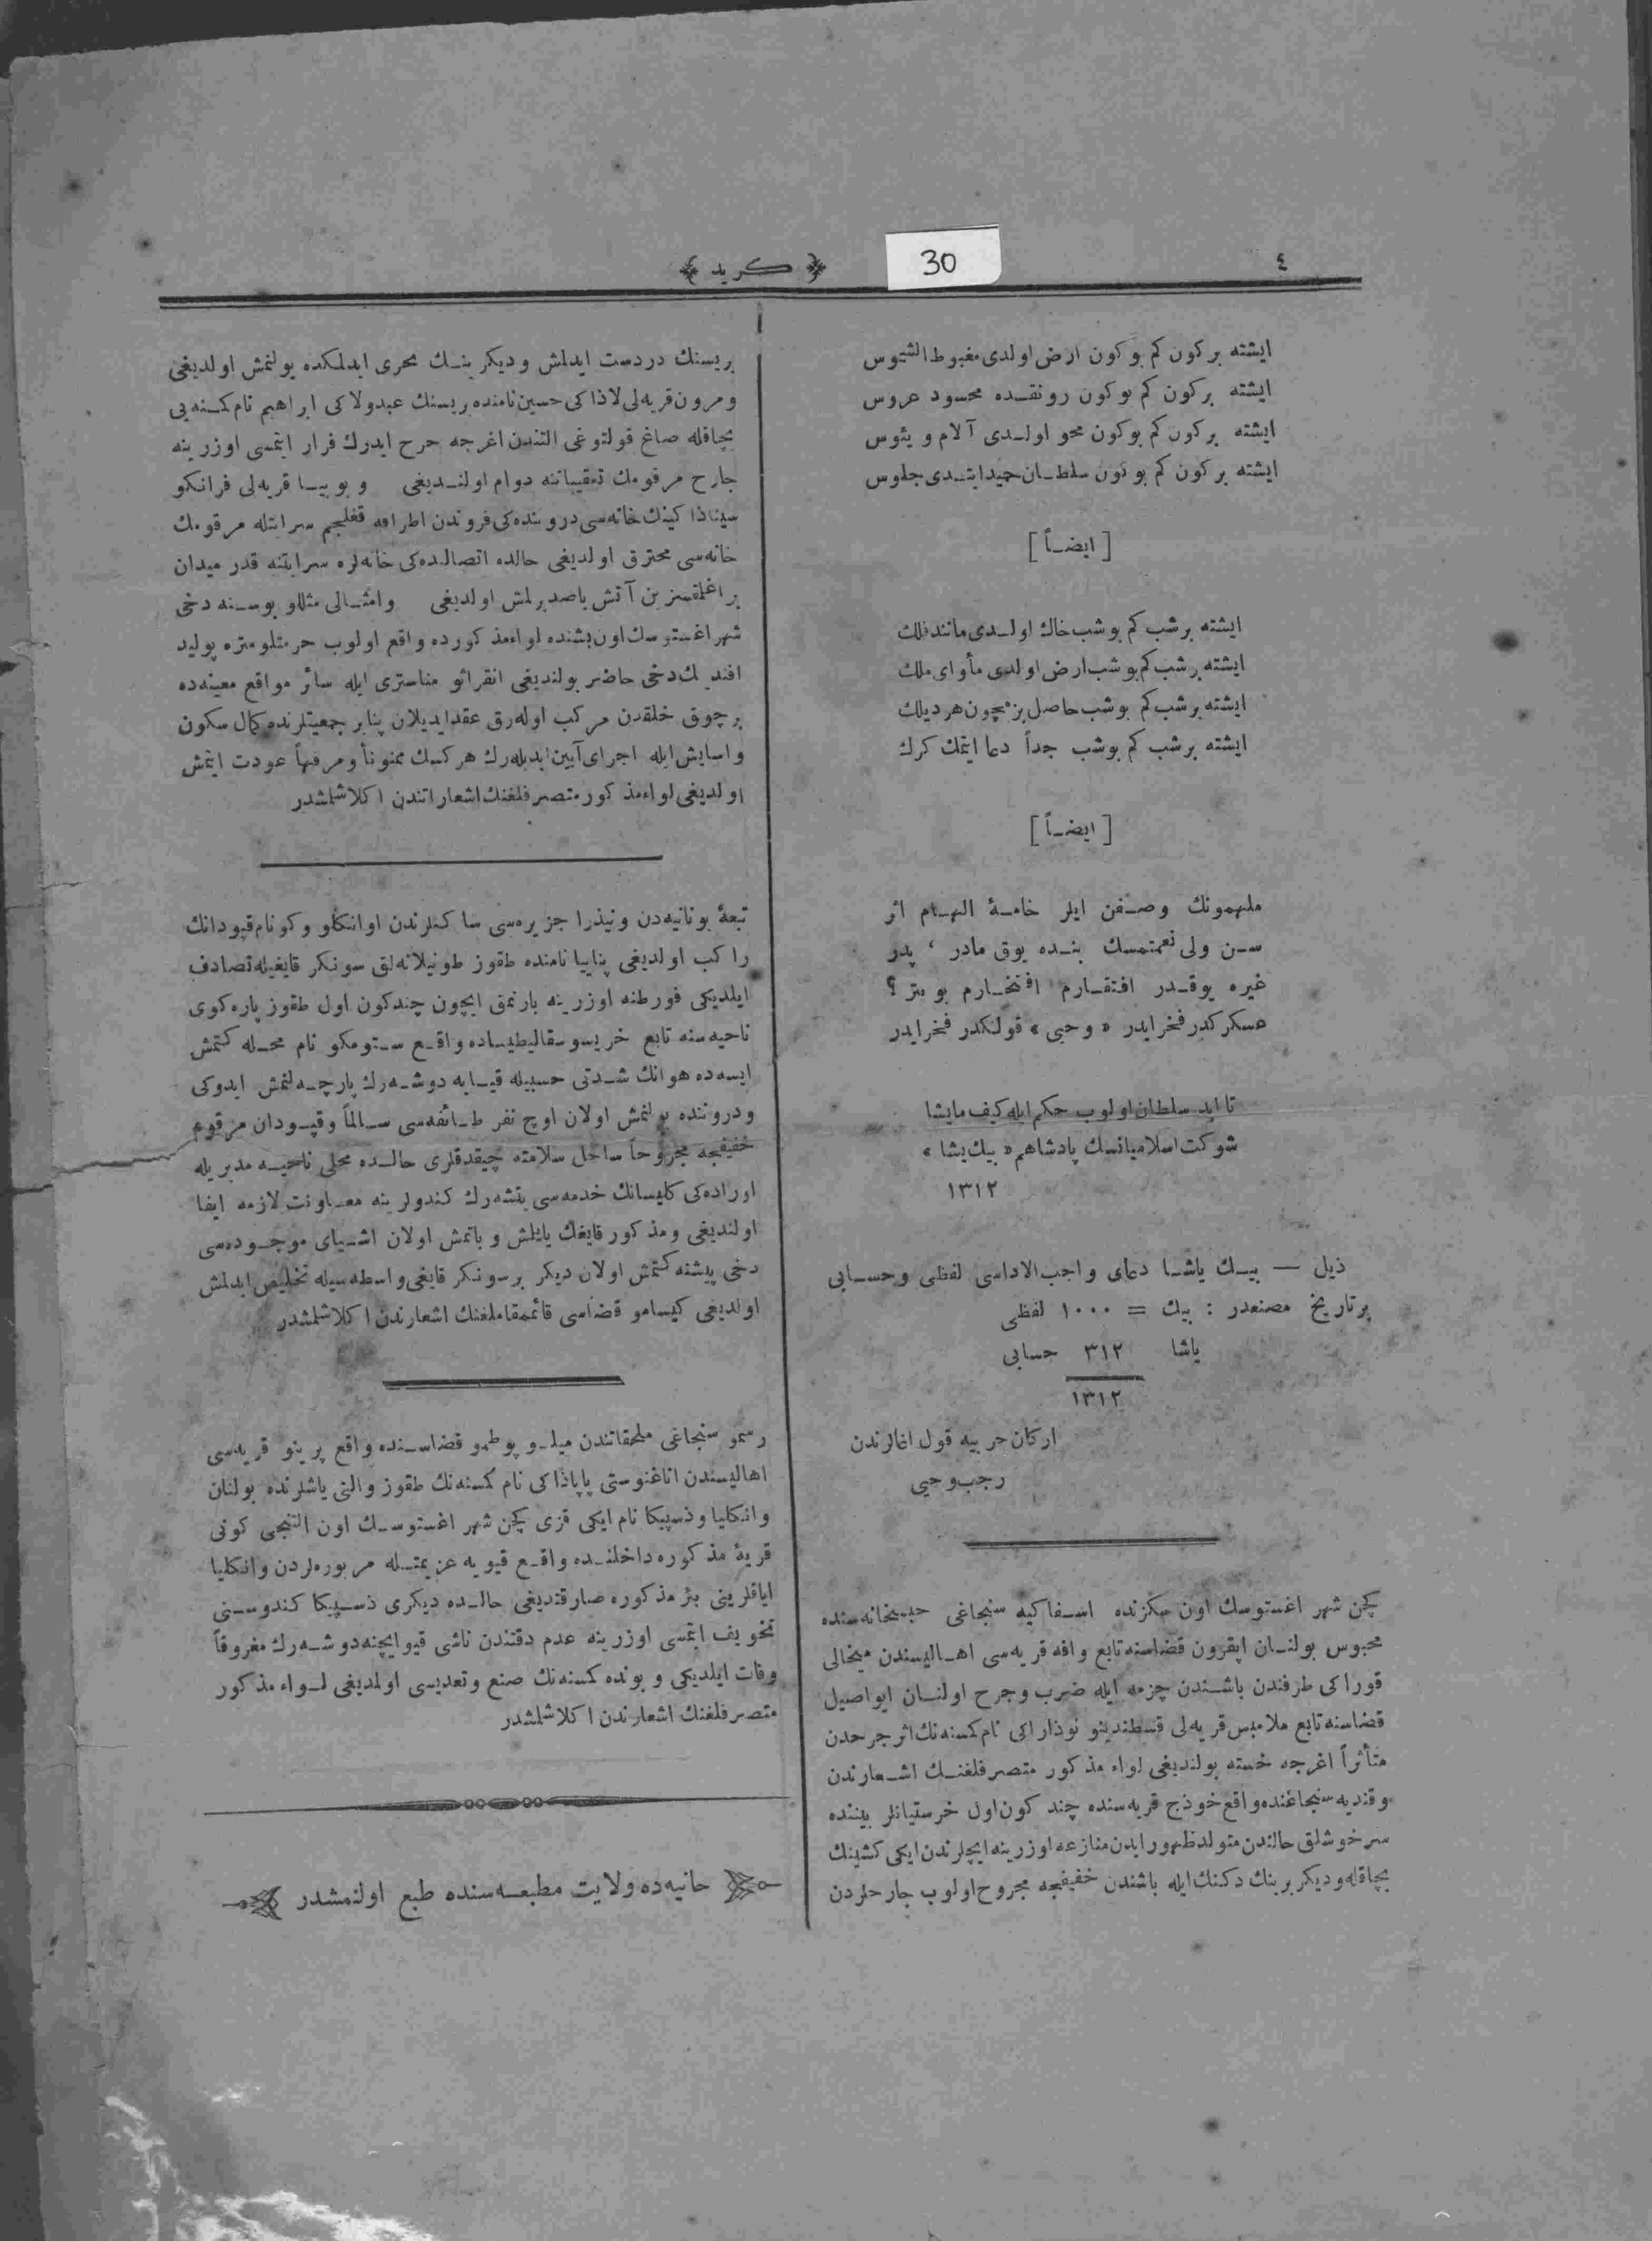 ٤
30
﴿ كريد ﴾
ايشته بر كون كم بو كون ارض اولدى مغبوط الشموس
ايشته بر كون كم بو كون رونقـده محسود عروس
ايشته بر كون كم بوكون محو اولـدى آلام و يئوس
ايشته بر كون كم بو كون سلطـان حميد ايتـدى جلوس
[ ايضـاً ]
ايشته بر شب كم بو شب خاك اولـدى مانند فلك
ايشته بر شب كم بو شب ارض اولدى مأواى ملك
ايشته بر شب كم بو شب حاصل بزمچون هر ديلك
ايشته بر شب كم بو شب جداً دعا ايتمك كرك
[ ايضـاً ]
ملهمونك وصـفن ايلر خامـۀ الهـام اثر
سـن ولى نعمتمسك بنـده يوق مادر ، پدر
غيره يوقـدر افتقـارم افتخـارم بو يتر ؟
عسكر كدر فخر ايدر « وحيى » قولكدر فخر ايدر
تا ابد سلطان اولوب حكم ايله كيف مايشا
شوكت اسلاميانسك پادشاهم « بيك يشا »
١٣١٢
ذيل — بيـك ياشـا دعاى واجب الاداسى لفظى وحسـابى
بر تاريخ مصنعدر : بيك = ١٠٠٠ لفظى
ياشا ٣١٢ حسابى
١٣١٢
اركان حربيه قول اغالرندن
رجب وحيى
كچن شهر اغستوسك اون سكزنده اسـفاكيه سنجاغى حبسخانه سنده
محبوس بولنـان اپقرون قضاسنه تابع وافه قريه سى اهـاليسندن ميخالى
قوراكى طرفندن باشـندن چزمه ايله ضرب وجرح اولنـان ايواصيل
قضاسنه تابع ملامبس قريه لى قسطندينو نوذاراكى نام كسنه نك اثر جرحدن
متأثراً اغرجه خسته بولنديغى لواء مذكور متصرفلغنـك اشـعارندن
وقنديه سنجاغنده واقع خوذج قريه سنده چند كون اول خرستيانلر بيننده
سرخوشلق حالندن متولد ظهور ايدن منازعه اوزرينه ايچلرندن ايكى كشينك
بچاقله وديكر برينك دكنك ايله باشندن خفيفجه مجروح اولوب جارحلردن
بريسنك دردست ايدلمش وديكرينـك تحرى ايدلمكده بولنمش اولديغى
ومرون قريه لى لاذاكى حسين نامنده بريسنك عبدولاكى ابراهيم نام كسنه يى
بچاقله صاغ قولتوغى التندن اغرجه جرح ايدرك فرار ايتمسى اوزرينه
جارح مرقومك تعقيباتنه دوام اولنـديغى و بو بيـا قريه لى فرانكو
سيناذاكينك خانه سى دروننده كى فروندن اطرافه قغلجم سرايتله مرقومك
خانه سى محترق اولديغى حالده اتصالنده كى خانه لره سرايتنه قدر ميدان
براغلقسزين آتش باصديرلمش اولديغى وامثـالى مثللو بوسـنه دخى
شهر اغستوسك اون بشنده لواء مذكورده واقع اولوب حرمتلو متره پوليد
افندينك دخى حاضر بولنديغى انقراثو مناسترى ايله سائر مواقع معينه ده
بر چوق خلقدن مركب اوله رق عقد ايديلان پناير جمعيتلرنده كمال سكون
واسايش ايله اجراى آيين ايديله رك هركسك ممنوناً ومرفهاً عودت ايتمش
اولديغى لواء مذكور متصرفلغنك اشعاراتندن اكلاشلمشدر
تبعۀ يونانيه دن ونيذرا جزيره سى ساكنلرندن اوانكلو وكو نام قپودانك
راكب اولديغى پناييا نامنده طقوز طونيلاته لق سونكر قايغيله تصادف
ايلديكى فورطنه اوزرينه بارنمق ايچون چند كون اول طقوز پاره كوى
ناحيه سنه تابع خريسوسقاليطيساده واقـع سـتومكو نام محـله كتمش
ايسه ده هوانك شـدتى حسبيله قيـايه دوشـه رك پارچـه لنمش ايدوكى
ودروننده بولنمش اولان اوچ نفر طـائفه سى سـالماً وقپـودان مرقوم
خفيفجه مجروحاً ساحل سلامته چيقدقلرى حالـده محلى ناحيـه مديريله
اوراده كى كليسانك خدمه سى يتشه رك كندولرينه معـاونت لازمه ايفا
اولنديغى ومذكور قايغك يانلمش و باتمش اولان اشـياى موجـوده سى
دخى پيشنه كتمش اولان ديكر بر سونكر قايغى واسطه سيله تخليص ايدلمش
اولديغى كيسامو قضاسى قائممقاملغنك اشعارندن اكلاشلمشدر
رسمو سنجاغى ملحقاتندن ميلـو پوطمو قضاسـنده واقع پرينو قريه سى
اهاليسندن اناغنوستى پاپاذاكى نام كمسنه نك طقوز والتى ياشلرنده بولنان
وانكليا وذسپيكا نام ايكى قزى كچن شهر اغستوسـك اون التنجى كونى
قريۀ مذكوره داخلنـده واقـع قيويه عزيمتـله مزبوره لردن وانكليا
اياقلرينى بئر مذكوره صارقنديغى حالـده ديكرى ذسـپيكا كندوسـنى
تخويف ايتمسى اوزرينه عدم دقتندن ناشى قيو ايچنه دوشـه رك مغروقاً
وفات ايلديكى و بونده كمسنه نك صنع وتعديسى اولمديغى لـواء مذكور
متصرفلغنك اشعارندن اكلاشلمشدر
حانيه ده ولايت مطبعـه سنده طبع اولنمشدر